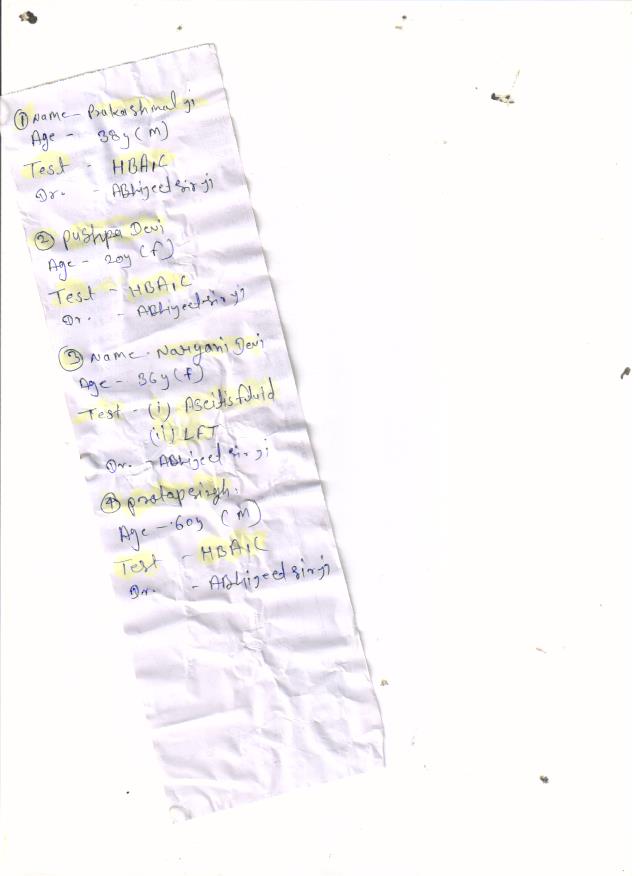 ① Name - Prakashmal ji
Age - 38y (M)
Test - HBA1C
Dr. - ABhijeet sir ji
② Pushpa Devi
Age - 20y (f)
Test - HBA1C
Dr. - ABhijeet sir ji
③ Name - Naryani Devi
Age - 36y (f)
Test - (i) Ascitis fluid
(ii) LFT
Dr. - ABhijeet sir ji
④ pratapsingh.
Age - 60y (M)
Test - HBA1C
Dr. - ABhijeet sir ji